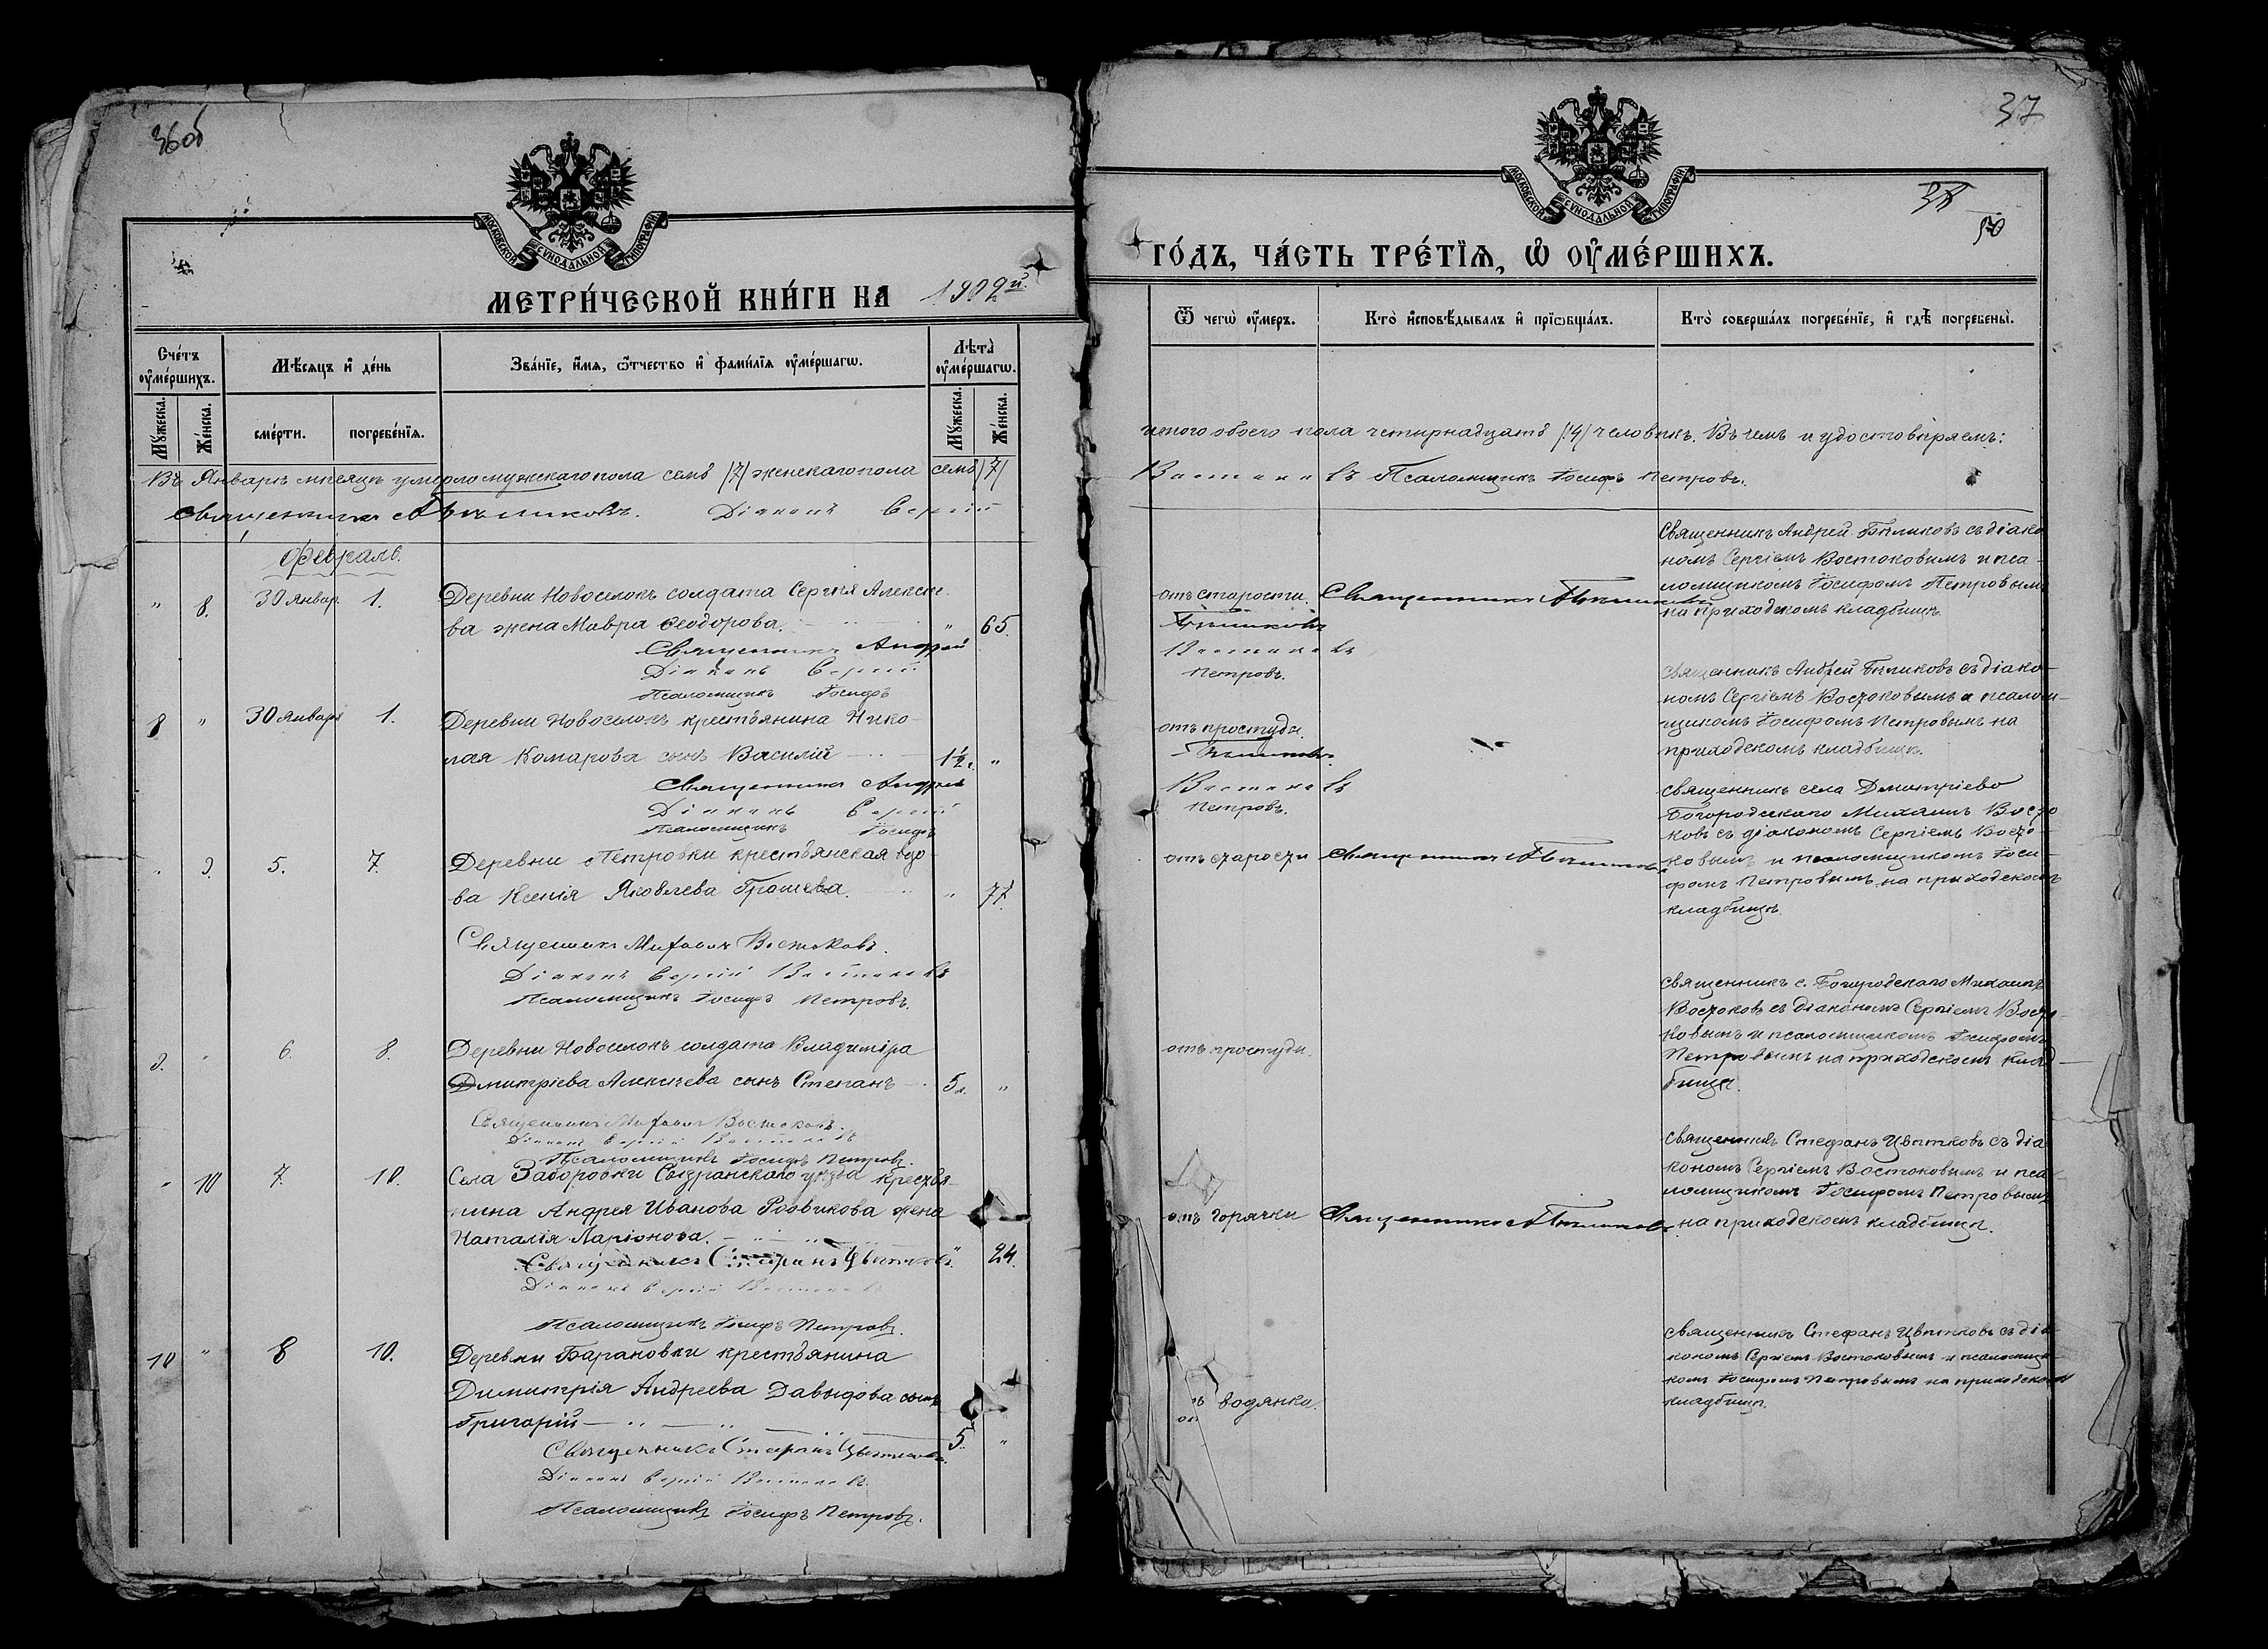 36об
МОСКОВСКОЙ СѴНОДАЛЬНОЙ ТИПОГРАФИИ
МЕТРИ́ЧЕСКОЙ КНИ́ГИ НА 1902й.
Сче́тъ ᲂу҆ме́ршихъ.
Мѣ́сяцъ и҆ де́нь
Зва́нїе, и҆́мя, ѻ҆́тчество и҆ фами́лїя ᲂу҆ме́ршагѡ.
Лѣ́та ᲂу҆ме́ршагѡ.
Мꙋ́жеска.
Же́нска.
сме́рти.
погребе́нїя.
Мꙋ́жеска.
Же́нска.
Въ Январѣ мѣсяцѣ умерло мужскаго пола семь /7/ женскаго пола семь /7/
Священникъ А Бѣликовъ. Діаконъ Сергій
Февраль.
" 8. 30 Январ. 1. Деревни Новоселокъ солдата Сергѣя Алексѣе-
ва жена Мавра Ѳеодорова. " 65.
Священникъ Андрей
Діаконъ Сергій
Псаломщикъ Іосифъ
8 " 30 Января 1. Деревни Новоселокъ крестьянина Нико-
лая Комарова сынъ Василій 1½ г. "
Священникъ Андрей
Діаконъ Сергій
Псаломщикъ Іосифъ
" 9. 5. 7. Деревни Петровки крестьянская вдо-
ва Ксенія Яковлева Грошева. " 77.
Священникъ Михаилъ Востоковъ.
Діаконъ Сергій Востоковъ
Псаломщикъ Іосифъ Петровъ.
9. " 6. 8. Деревни Новоселокъ солдата Владиміра
Дмитріева Алексѣева сынъ Степанъ 5 л. "
Священникъ Михаилъ Востоковъ.
Діаконъ Сергій Востоковъ
Псаломщикъ Іосифъ Петровъ.
" 10 7. 10. Села Заборовки Сызранскаго уѣзда крестья-
нина Андрея Иванова жена
Наталія Ларіонова. " 24.
Священникъ Стефанъ Цвѣтковъ.
Діаконъ Сергій Востоковъ
Псаломщикъ Іосифъ Петровъ.
10 " 8 10. Деревни Барановки крестьянина
Димитрія Андреева Давыдова сынъ
Григорій 5. "
Священникъ Стефанъ Цвѣтковъ.
Діаконъ Сергій Востоковъ
Псаломщикъ Іосифъ Петровъ.
37
38
50
МОСКОВСКОЙ СѴНОДАЛЬНОЙ ТИПОГРАФИИ
ГО́ДЪ, ЧА́СТЬ ТРЕ́ТЇѦ, Ѡ҆ ОУ҆МЕ́РШИХЪ.
Ѿ чегѡ̀ ᲂу҆́меръ.
Кто̀ и҆сповѣ́дывалъ и҆ прїѡбща́лъ.
Кто̀ соверша́лъ погребе́нїе, и҆ гдѣ̀ погребены̀.
итого обоего пола четырнадцать /14/ человѣкъ. Въ чемъ и удостовѣряемъ:
Востоковъ Псаломщикъ Іосифъ Петровъ.
Священникъ Андрей Бѣликовъ съ діако-
номъ Сергіемъ Востоковымъ и пса-
ломщикомъ Іосифомъ Петровымъ
на приходскомъ кладбищѣ.
отъ старости. Священникъ А Бѣликовъ
Бѣликовъ
Востоковъ
Петровъ.
Священникъ Андрей Бѣликовъ съ діако-
номъ Сергіемъ Востоковымъ и псалом-
щикомъ Іосифомъ Петровымъ на
приходскомъ кладбищѣ.
отъ простуды.
Бѣликовъ.
Востоковъ
Петровъ.
Священникъ села Дмитріево
Богородскаго Михаилъ Восто
ковъ съ діакономъ Сергіемъ Восто-
ковымъ и псаломщикомъ Іоси-
фомъ Петровымъ на приходскомъ
кладбищѣ.
отъ старости Священникъ А Бѣликовъ
Священникъ с. Богородскаго Михаилъ
Востоковъ съ діакономъ Сергіемъ Восто-
ковымъ и псаломщикомъ Іосифомъ
Петровымъ на приходскомъ клад-
бищѣ.
отъ простуды.
Священникъ Стефанъ Цвѣтковъ съ діа
кономъ Сергіемъ Востоковымъ и пса-
ломщикомъ Іосифомъ Петровымъ
на приходскомъ кладбищѣ.
отъ горячки Священникъ А Бѣликовъ.
Священникъ Стефанъ Цвѣтковъ съ діа-
кономъ Сергіемъ Востоковымъ и псаломщи-
комъ Іосифомъ Петровымъ на приходскомъ
кладбищѣ.
водянки.